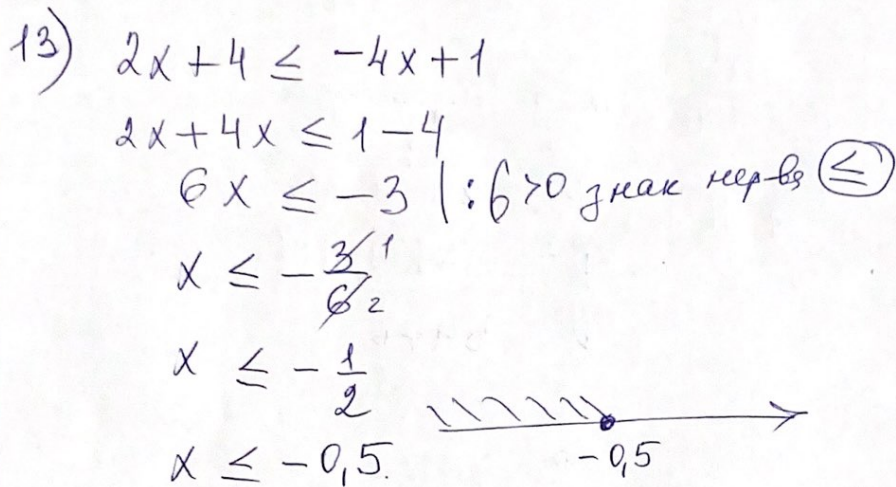 13) 2x + 4 ≤ -4x + 1
2x + 4x ≤ 1 - 4
6x ≤ -3 | : 6 > 0 знак нер-ва ≤
x ≤ - 3 1 / 6 2
x ≤ - 1/2
x ≤ -0,5.
-0,5